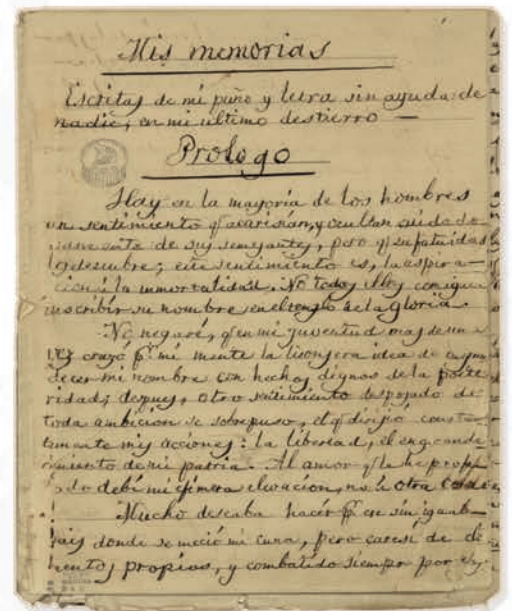 Mis memorias
Escritas de mi puño y letra sin ayuda de
nadie, en mi ultimo destierro —
Prologo
Hay en la mayoria de los hombres
un sentimiento q. acarician, y ocultan cuidado
samente de sus semejantes, pero q. su fatuidad
lo descubre; este sentimiento es, la aspira—
cion á la inmortalidad. No todos ellos consiguen
inscribir su nombre en el templo de la gloria.
No negaré, q. en mi juventud mas de una
vez cruzo p. mi mente la lisonjera idea de
mi nombre con hechos dignos de la poste
ridad; despues, otro sentimiento despojado de
toda ambicion se sobrepuso, el q. dirijió constan
temente mis acciones: la libertad, el engrande
cimiento de mi patria. Al amor, q. le he profe
sado debí mi efimera elevacion, no á otra cosa
Mucho deseaba hacer p. ese sin igual
pais donde se meció mi cuna, pero careci de ele
mentos propios, y combatido siempre por